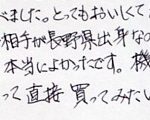 べました。とってもおいしくて
相手が長野県出身な
本当によかったです。機
って直接買ってみたい